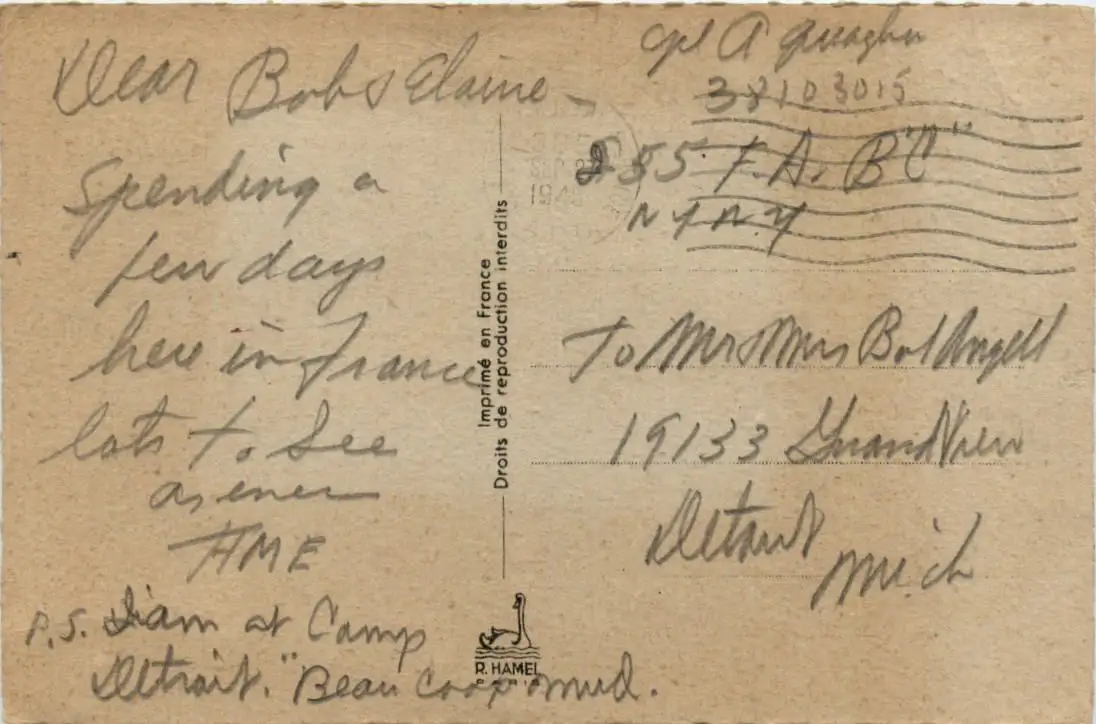 Dear Bob & Elaine –
Spending a
few days
here in France
lots to see
as ever
AME
P.S. I am at Camp
Detroit. "Beau coop mud.
Imprimé en France
Droits de reproduction interdits
R. HAMEL
PARIS
Cpl A
38103015
255 F.A. B "C"
N Y N.Y
SEP
194
To Mr & Mrs Bob Angell
19133 Grand View
Detroit
Mich